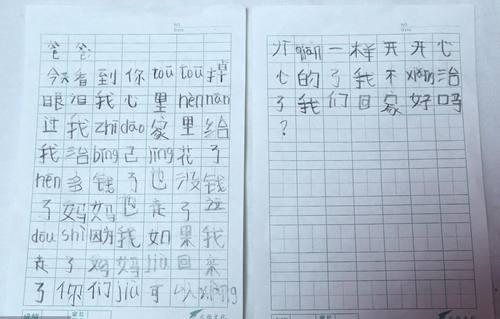 爸爸:
今天看到你tōu tōu掉
眼泪我心里hèn nán
过我zhī dào家里给
我治bìng己jīng花了
hěn多钱了也没钱
了妈妈也走了这
dōu shì因为我如果我
走了妈妈jiù回来
了你们jiù可以
NO.
Date
像qián一样开开心
心的了我不xiǎng治
了我们回家好吗
?